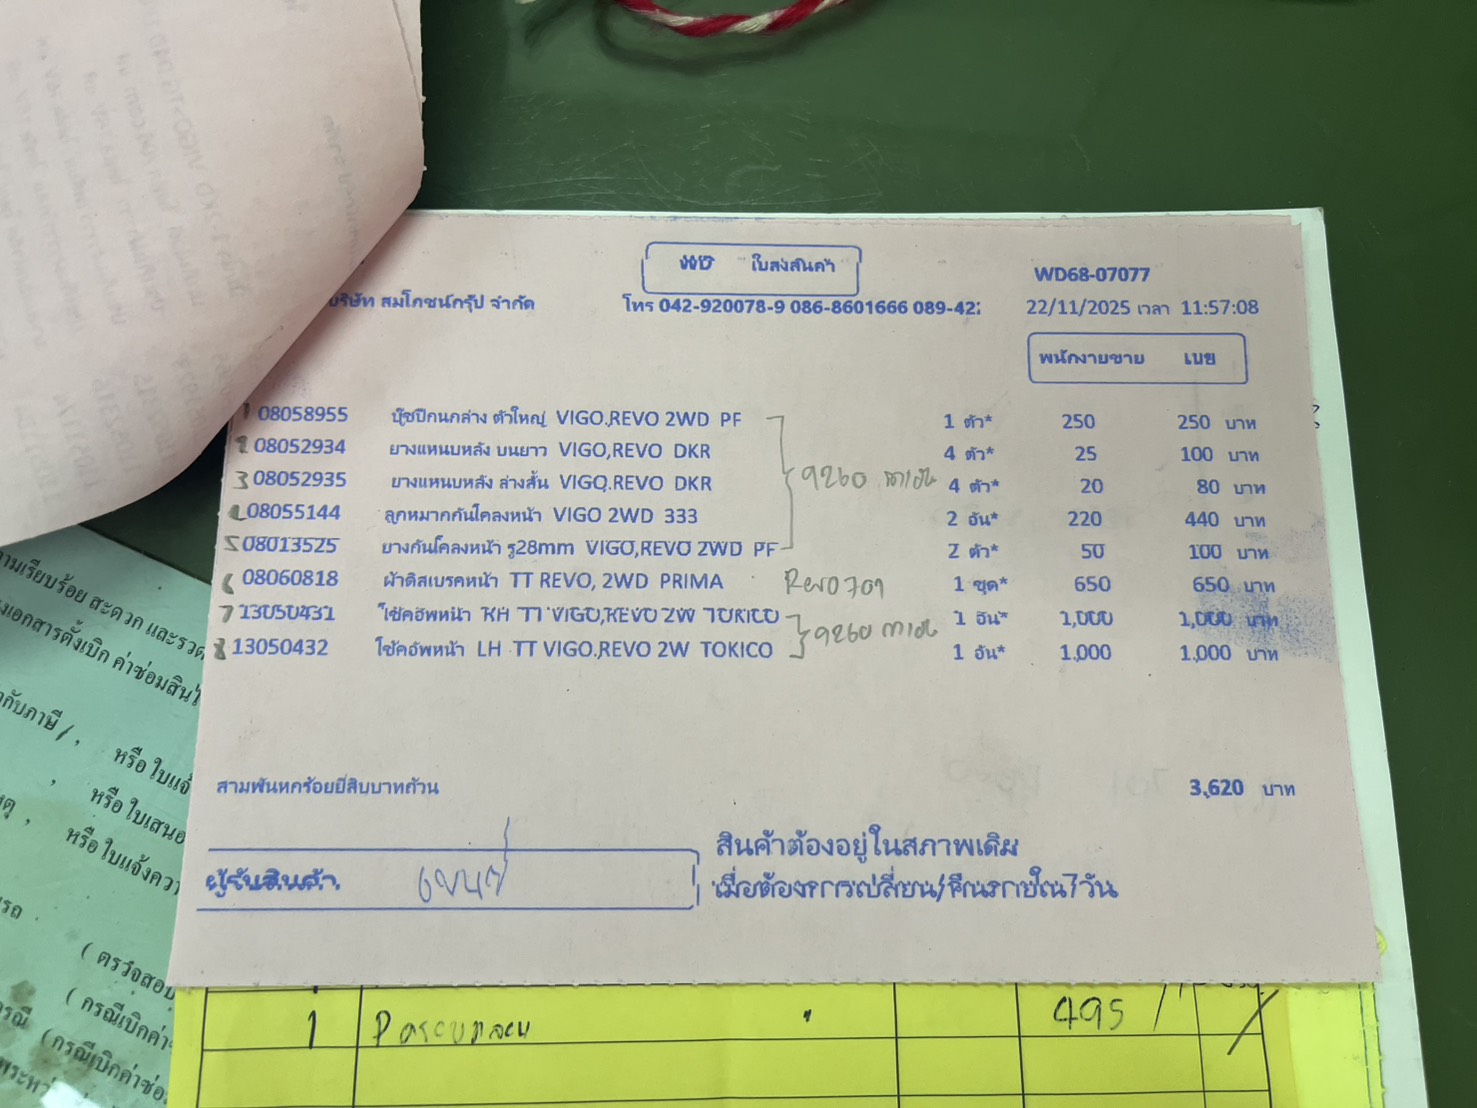 WD ใบส่งสินค้า
WD68-07077
บริษัท สมโภชน์กรุ๊ป จำกัด โทร 042-920078-9 086-8601666 089-42
22/11/2025 เวลา 11:57:08
พนักงายขาย เนย
1 08058955 บุ๊ชปีกนกล่าง ตัวใหญ่ VIGO,REVO 2WD PF 1 ตัว* 250 250 บาท
2 08052934 ยางแหนบหลัง บนยาว VIGO,REVO DKR 4 ตัว* 25 100 บาท
3 08052935 ยางแหนบหลัง ล่างสั้น VIGO.REVO DKR 9260 4 ตัว* 20 80 บาท
08055144 ลูกหมากกันโคลงหน้า VIGO 2WD 333 2 อัน* 220 440 บาท
5 08013525 ยางกันโคลงหน้า รู28mm VIGO,REVO 2WD PF 2 ตัว* 50 100 บาท
6 08060818 ผ้าดิสเบรคหน้า TT REVO, 2WD PRIMA Revo 709 1 ชุด* 650 650 บาท
7 13050431 โช้คอัพหน้า RH TT VIGO,REVO 2W TOKICO 1 อัน* 1,000 1,000 บาท
9260
8 13050432 โช้คอัพหน้า LH TT VIGO,REVO 2W TOKICO 1 อัน* 1,000 1,000 บาท
สามพันหกร้อยยี่สิบบาทถ้วน 3,620 บาท
สินค้าต้องอยู่ในสภาพเดิม
ผู้รับสินค้า
เมื่อต้องการเปลี่ยน/คืนภายใน7วัน
1 495
ามเรียบร้อย สะดวก และรวด
งเอกสารตั้งเบิก ค่าซ่อมสิน
ากับภาษี/, หรือ ใบแจ้
, หรือ ใบเสนอ
ตุ , หรือ ใบแจ้งควา
รถ
( ตรวจสอบ
( กรณีเบิกค่า
รณี (กรณีเบิกค่าซ่อ